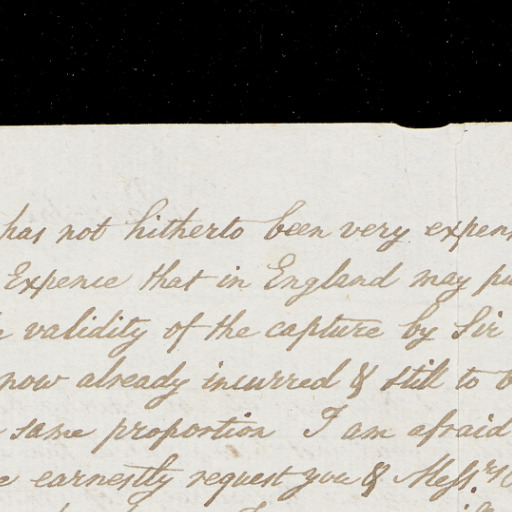 has not hitherto been very expens
Expence that in England may pu
validity of the capture by Sir
now already incurred & still to b
same proportion I am afraid
earnestly request you & Messrs